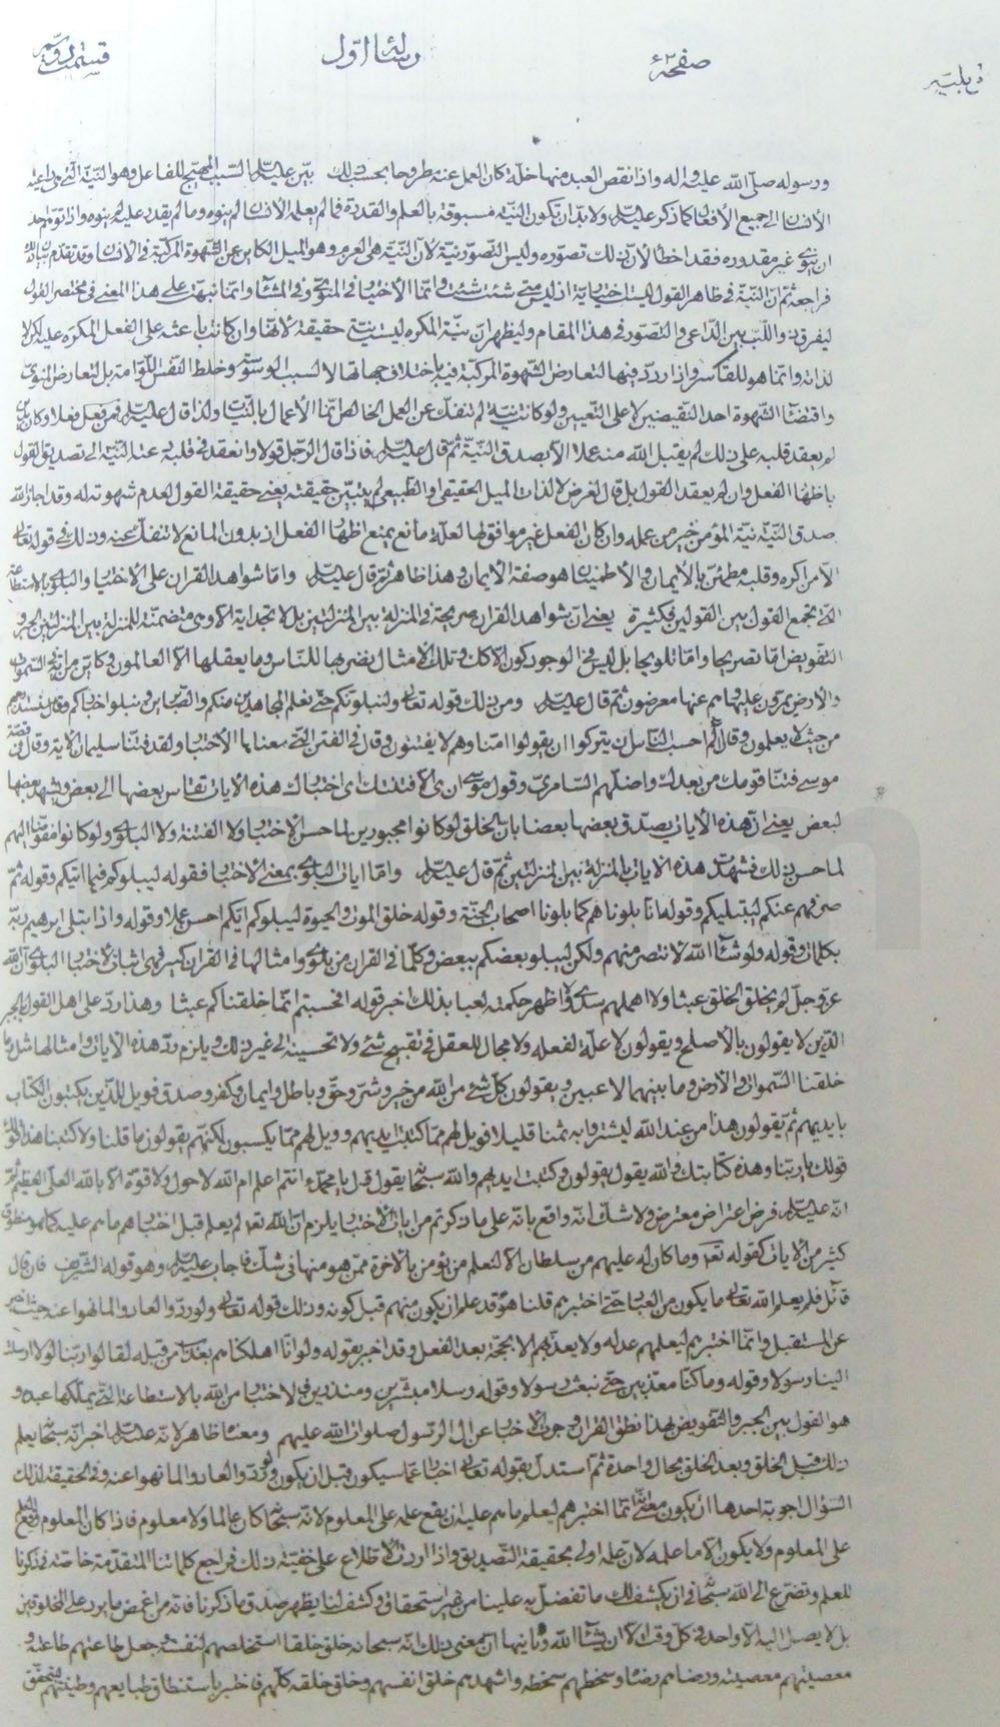 صفحه ٤٢ رسالة اول قسمت دوم
ورسوله صلى الله عليه واله واذا نقص العبد منها خلة كان العمل عنه مطروحا بحسب ذلك بين عليه السلم السبب المهيج للفاعل وهو النية التى هى داعية
الانسان الى جميع الافعال كما ذكر عليه السلم ولا بد ان تكون النية مسبوقة بالعلم والقدرة فما لم يعلمه الانسان لم ينوه وما لم يقدر عليه لم ينوه واذا توهم احد
ان ينوى غير مقدوره فقد اخطأ لان ذلك تصوره وليس التصور نية لان النية هى العزم وهو الميل الكاين عن الشهوة المركبة فى الانسان وقد تقدم بيان ذلك
فراجعه ثم ان النية فى ظاهر القول ليست اختيارية اذ ليس متى شئت شئت وانما الاختيار فى المنوى وفى المشاء وانما نبهت على هذا المعنى فى مختصر القول
ليفرق ذو اللب بين الداعى والتصور فى هذا المقام وليظهر ان نية المكره ليست بنية حقيقة لانها وان كانت باعثه على الفعل المكره عليه لكن لا
لذاته وانما هو للقاسر وان ردد فيها لتعارض الشهوة المركبة فيه باختلاف جهاتها لا لسبب الوسوسة وخلط النفس اللوامة بل لتعارض المنوى
واقتضاء الشهوة احد النقيضين لا على التعيين ولو كانت نية لم تنفك عن العمل الخالص انما الاعمال بالنيات ولذا قال عليه السلم فمن فعل فعلا وكان بدين
لم يعقد قلبه على ذلك لم يقبل الله منه عملا الا بصدق النية ثم قال عليه السلم فاذا قال الرجل قولا وانعقد فى قلبه عنه النية الى تصديق القول
باظهار الفعل وان لم يعقد القول بل قال لغرض لا لذات الميل الحقيقى او الطبيعى لم يتبين حقيقته يعنى حقيقة القول لعدم شهوته له وقد اجاز الله
صدق النية نية المؤمن خير من عمله وان كان الفعل غير موافق لها لعلة مانع يمنع اظهار الفعل اذ بدون المانع لا تنفك عنه وذلك فى قوله تعالى
الا من اكره وقلبه مطمئن بالايمان والاطمينان هو صفة الايمان وهذا ظاهر ثم قال عليه السلم واما شواهد القران على الاختبار والبلوى بالاستطاعة
التى تجمع القول بين القولين فكثيرة يعنى ان شواهد القران صريحة فى المنزلة بين المنزلتين بل لا تجد اية الا وهى متضمنة للمنزلة بين المنزلتين الجبر و
التفويض اما تصريحا واما تلويحا بل ليس فى الوجود كون الا كذلك وتلك الامثال نضربها للناس وما يعقلها الا العالمون وكاين من اية فى السموات
والارض يمرون عليها وهم عنها معرضون ثم قال عليه السلم ومن ذلك قوله تعالى ولنبلونكم حتى نعلم المجاهدين منكم والصابرين ونبلوا اخباركم وقال سنستدرجهم
من حيث لا يعلمون وقال الم احسب الناس ان يتركوا ان يقولوا امنا وهم لا يفتنون وقال فى الفتن التى معناها الاختبار ولقد فتنا سليمان الاية وقال فى قصة
موسى فتنا قومك من بعدك واضلهم السامرى وقول موسى ان هى الا فتنتك اى اختبارك هذه الايات تقاس بعضها الى بعض ويشهد بعضها
لبعض يعنى ان هذه الايات يصدق بعضها بعضا بان الخلق لو كانوا مجبورين لما حسن الاختبار ولا الفتنة ولا البلوى ولو كانوا مفوضا اليهم
لما حسن ذلك فشهدت هذه الايات بالمنزلة بين المنزلتين ثم قال عليه السلم واما ايات البلوى بمعنى الاختبار فقوله ليبلوكم فيما اتيكم وقوله ثم
صرفهم عنكم ليبتليكم وقوله انا بلوناهم كما بلونا اصحاب الجنة وقوله خلق الموت والحيوة ليبلوكم ايكم احسن عملا وقوله واذ ابتلى ابرهيم ربه
بكلمات وقوله ولو شاء الله لانتصر منهم ولكن ليبلو بعضكم ببعض وكلما فى القران من بلوى وامثالها فى القران كثير فهى اثبات الاختبار البلوى ان الله
عز وجل لم يخلق الخلق عبثا ولا اهملهم سدى ولا اظهر حكمته لعبا بذلك اخبر قوله افحسبتم انما خلقناكم عبثا وهذا رد على اهل القول بالجبر
الذين لا يقولون بالاصلح ويقولون لا علة لفعله ولا مجال للعقل فى تقبيح شئ ولا تحسينه الى غير ذلك ويلزم رد هذه الايات وامثالها مثل وما
خلقنا السموات والارض وما بينهما لاعبين ويقولون كل شئ من الله من خير وشر وحق وباطل وايمان وكفر وصدق فويل للذين يكتبون الكتاب
بايديهم ثم يقولون هذا من عند الله ليشتروا به ثمنا قليلا فويل لهم مما كتبت ايديهم وويل لهم مما يكسبون لكنهم يقولون ما قلنا ولا كتبنا هذا
قولك يا ربنا وهذه كتابتك والله يقول يقولون وكتبت ايديهم والله سبحانه يقول قل يا محمد ءانتم اعلم ام الله لا حول ولا قوة الا بالله العلى العظيم ثم
انه عليه السلم فرض اعتراض معترض ولا شك انه واقع بانه على ما ذكرتم من ايات الاختبار يلزم ان الله تعالى لم يعلم قبل اختبارهم ما هم عليه كما هو منطوق
كثير من الايات كقوله تعالى وما كان له عليهم من سلطان الا لنعلم من يؤمن بالاخرة ممن هو منها فى شك فاجاب عليه السلم وهو قوله الشريف فان قال
قائل فلم يعلم الله تعالى ما يكون من العباد حتى اختبرهم قلنا هو قد علم ان يكون منهم قبل كونه وذلك قوله تعالى ولو ردوا لعادوا لما نهوا عنه حيث اخبر
عن المستقبل وانما اختبرهم ليعلمهم عدله ولا يعذبهم الا بحجة بعد الفعل وقد اخبر بقوله ولو انا اهلكناهم بعذاب من قبله لقالوا ربنا لولا ارسلت
الينا رسولا وقوله وما كنا معذبين حتى نبعث رسولا وقوله رسلا مبشرين ومنذرين فالاختبار من الله بالاستطاعة التى يملكها عبده و
هو القول بين الجبر والتفويض بهذا نطق القران وجرت الاخبار عن ال الرسول صلوات الله عليهم ومعناه ظاهر لانه عليه السلم اخبر انه سبحانه يعلم
ذلك قبل الخلق وبعد الخلق بحال واحدة ثم استدل بقوله تعالى اخبارا عما سيكون قبل ان يكون ولو ردوا لعادوا لما نهوا عنه وفى الحقيقة لذلك
السؤال اجوبة احدها ان يكون معناه انما اختبرهم ليعلم ما هم عليه ان يقع علمه على المعلوم لانه سبحانه كان عالما ولا معلوم فاذا كان المعلوم وقع العلم
على المعلوم ولا يكون الا ما علمه لان علمه اولى بحقيقة التصديق واذا اردت الاطلاع على خفية ذلك فراجع كلماتنا المتقدمة خاصة فذكرنا
للمعلم وتضرع الى الله سبحانه فى ان يكشف لك ما تفضل به علينا من غير استحقاق وكشف لنا يظهر صدق ما ذكرنا فانه من اغمض ما يرد على المخلوقين
بل لا يصل اليه الا واحد فى كل وقت الا ان يشاء الله وثانيها ان معنى ذلك انه سبحانه خلق خلقا استخلصهم لنفسه جعل طاعتهم طاعته و
معصيتهم معصيته ورضاهم رضاه وسخطهم سخطه واشهدهم خلق انفسهم وخلق خلقه كلهم فاختبر باستنطاق طبايعهم وطينتهم